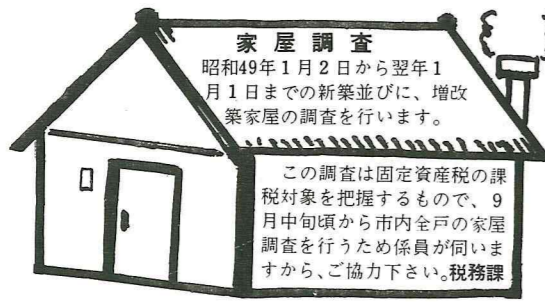 家屋調査
昭和49年1月2日から翌年1
月1日までの新築並びに、増改
築家屋の調査を行います。
この調査は固定資産税の課
税対象を把握するもので、9
月中旬頃から市内全戸の家屋
調査を行うため係員が伺いま
すから、ご協力下さい。税務課